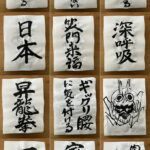 日本
笑門来福
深呼吸
昇龍拳
ギックリ腰
に気を付ける